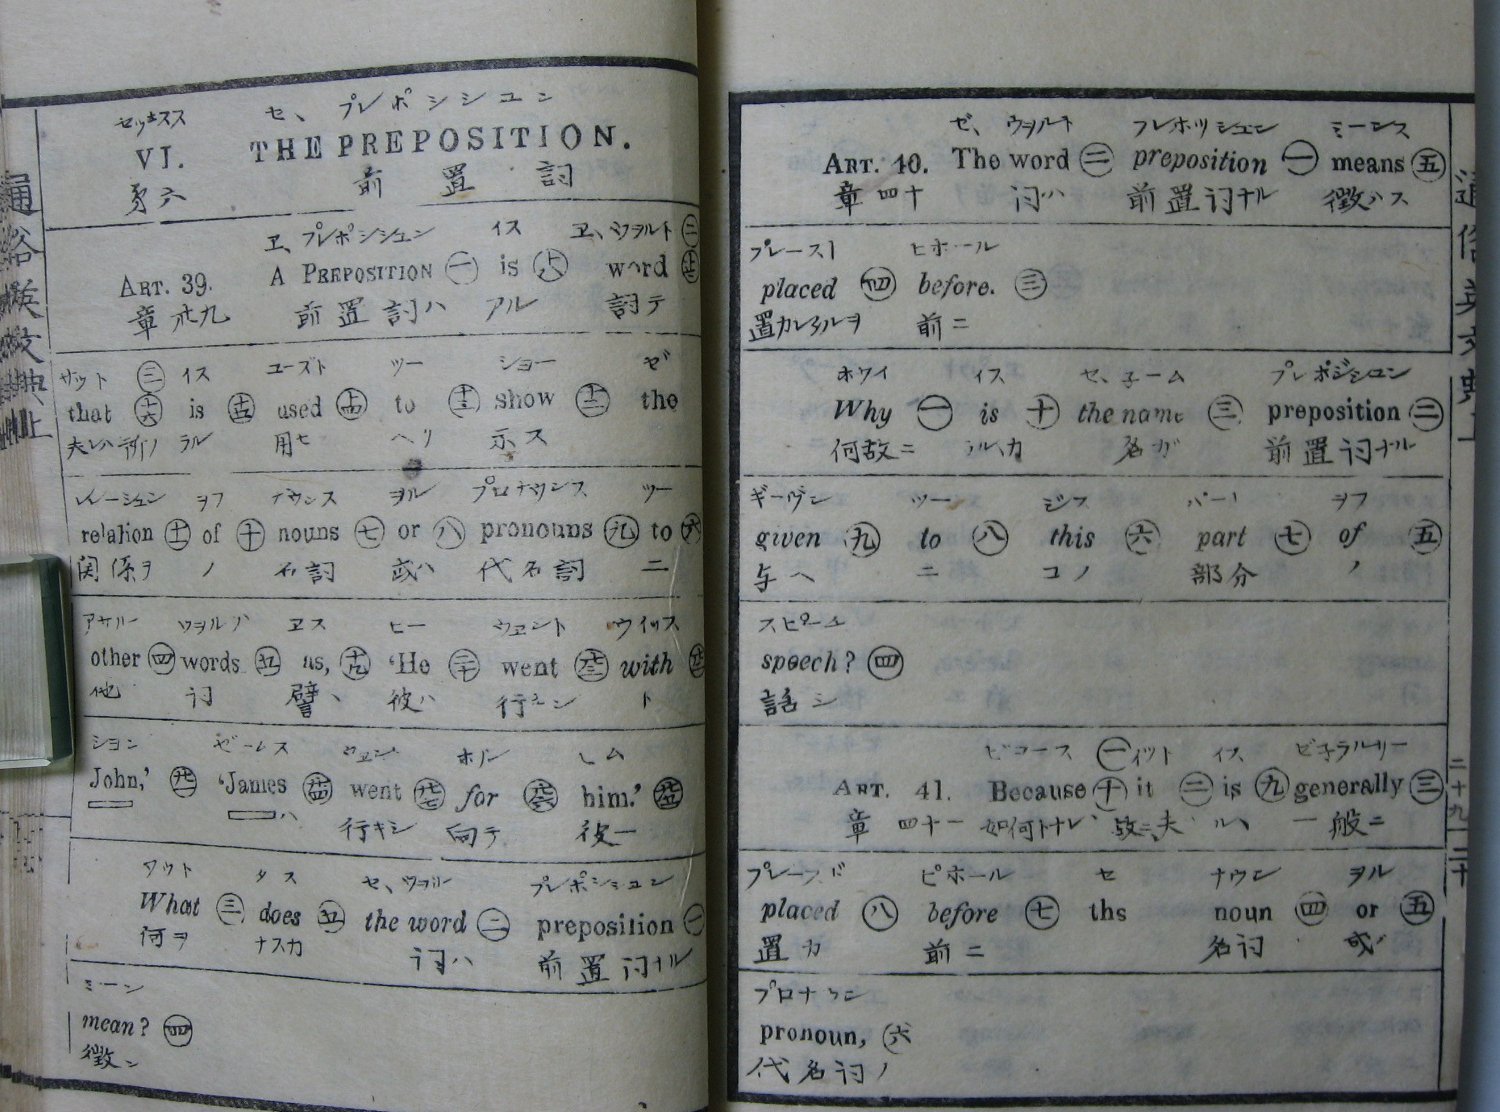 セ、プレポシシユン
VI. THE PREPOSITION.
前置詞
ヱ、プレポシシユン イス ヱ、ウヲルト ㊁
ART. 39. A PREPOSITION ㊀ is word
章 卅九 前置詞ハ アル 詞テ
ザット ㊂ イス ユーズト ツー ショー ゼ
that is used to show the
ラル 用セ ヘリ 示ス
レーシュン ヲフ ナウンス ヲル プロナウンス ツー
relation of ㊉ nouns ㊆ or ㊇ pronouns to
関係ヲ ノ 名詞 或ハ 代名詞 ニ
アザル ヲヲルヅ ヱス ヒー ウヱント ウイッス
other ㊃ words ㊄ as, ‘He went with
他 詞 譬ヘ 彼ハ 行 ト
ション ゼームス ウヱント ホル ヒム
John,’ ‘James went for him.’
ハ 行キシ 向テ 彼
ワット タス セ、ウヲルド プレポシシュン
What ㊂ does ㊄ the word ㊁ preposition ㊀
何ヲ ナスカ 詞ハ 前置詞ナル
ミーン
mean? ㊃
徴ン
ゼ、ウヲルト プレホッシュン ミーンス
ART. 40. The word ㊁ preposition ㊀ means ㊄
章 四十 詞ハ 前置詞ナル 徴ハス
プレースト ビホール
placed ㊃ before. ㊂
置カレタルヲ 前ニ
ホワイ イス セ、子ーム プレポジシユン
Why ㊀ is ㊉ the name ㊂ preposition ㊁
何故ニ アルカ 名ガ 前置詞ナル
ギーヴン ツー ジス パート ヲフ
given ㊈ to ㊇ this ㊅ part ㊆ of ㊄
与ヘ ニ コノ 部分 ノ
スピーチ
speech? ㊃
話シ
ビコース ㊀ イット イス ゼ子ラルリー
ART. 41. Because ㊉ it ㊁ is ㊈ generally ㊂
章 四十一 如何トナレバ 故ニ 夫 ル 一般ニ
プレースド ビホール セ ナウン ヲル
placed ㊇ before ㊆ ths noun ㊃ or ㊄
置カ 前ニ 名詞 或
プロナウン
pronoun, ㊅
代名詞ノ
二十九
二十